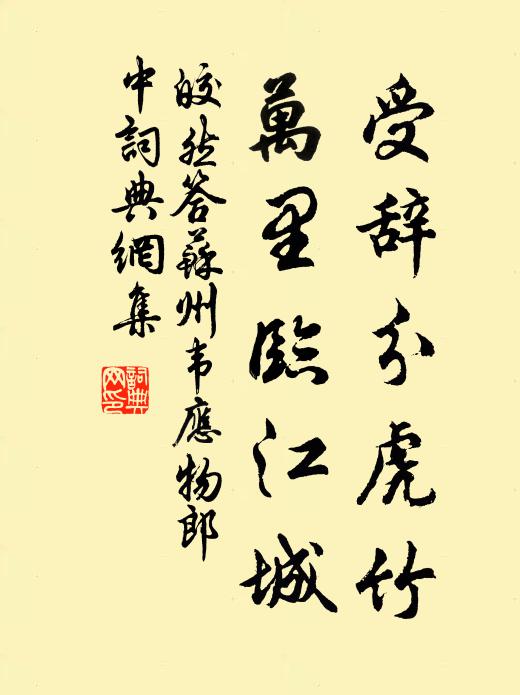 受辞分虎竹
萬里臨江城
皎然答蘇州韦應物郎
中詞典網集
詞典
网印